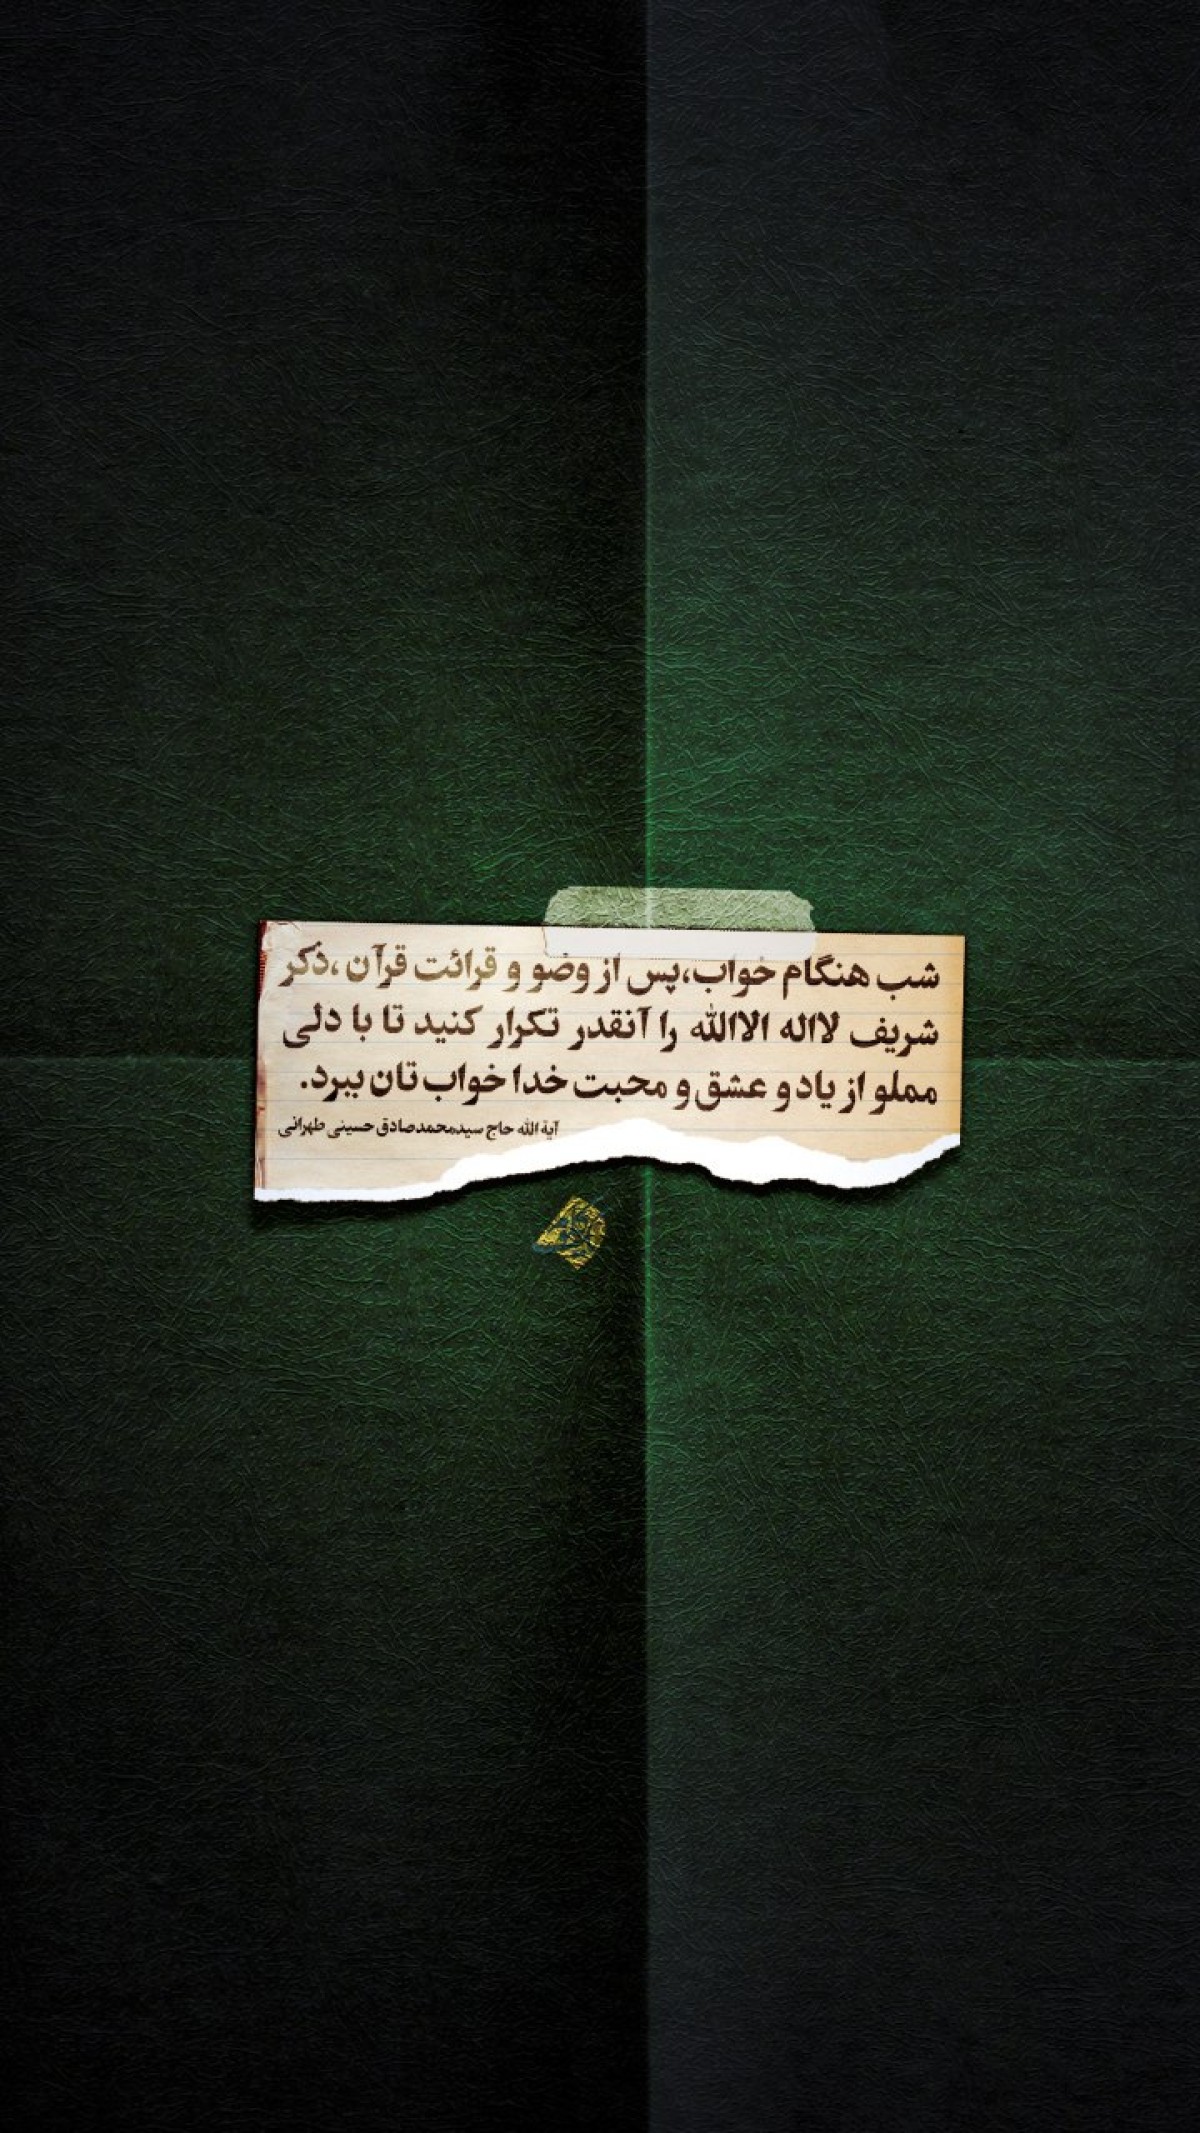 شب هنگام خواب،پس از وضو و قرائت قرآن ،ذکر
شریف لااله الاالله را آنقدر تکرار کنید تا با دلی
مملو از یاد و عشق و محبت خدا خواب تان ببرد.
آیة الله حاج سیدمحمدصادق حسینی طهرانی